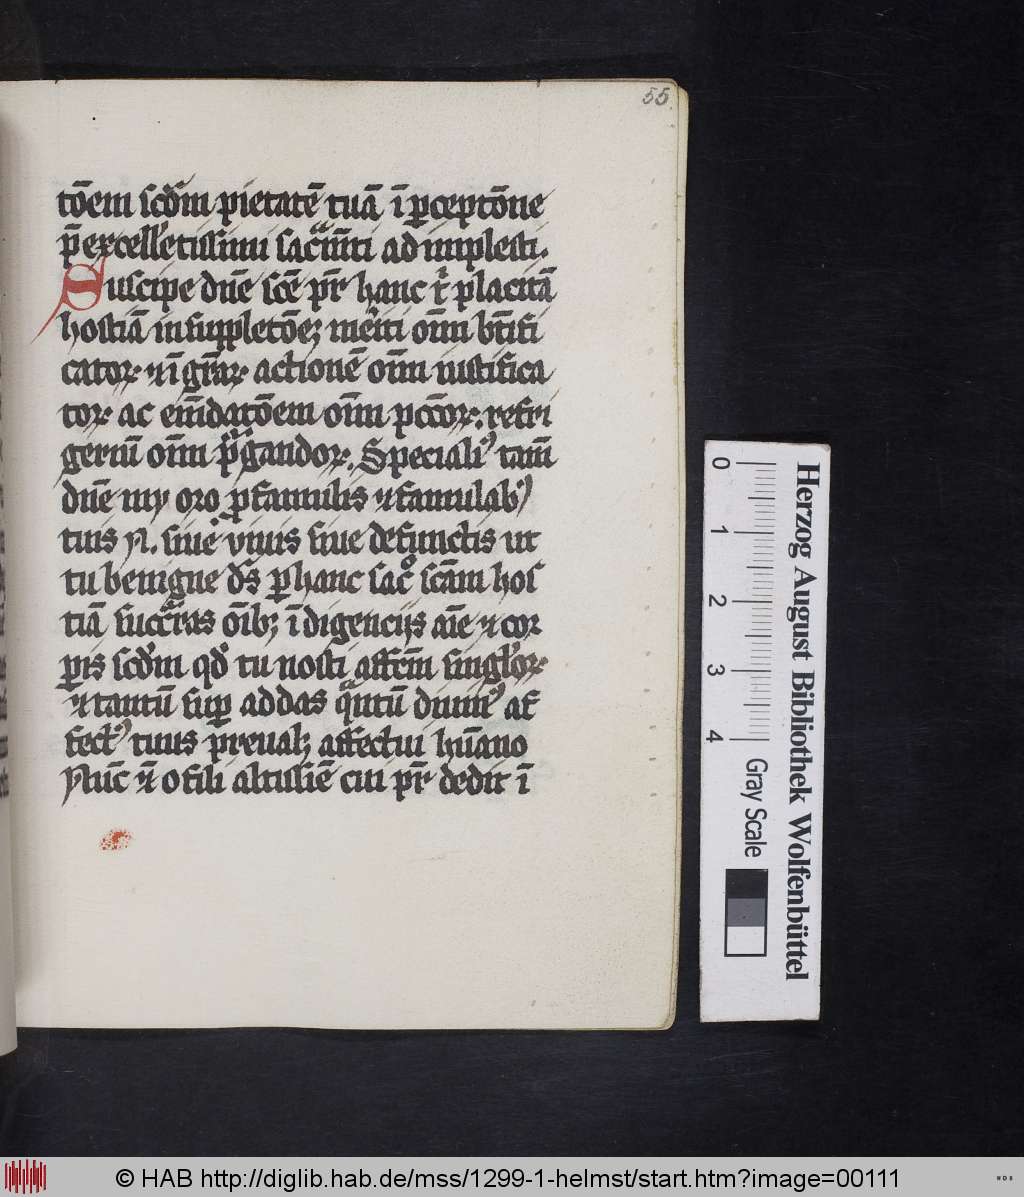 55
tōem scd̄m pietatē tuā ī ꝑceptōne
p̄excellētissimi sacͣm̄ti ad implesti.
Suscipe dn̄e scē pr̄ hanc t̄ placitā
hostiā in suppletōeꝫ meriti om̄ bt̄ifi
catoꝝ ⁊ ī gr̄aꝝ actionē om̄ iustifica
toꝝ ac em̄datōem om̄ pccōꝝ. refri
geriū om̄ pꝰgandoꝝ. Specialiꝰ tam̄
dn̄e my oro ꝓ famulis ⁊ famulabꝰ
tuis N. siue viuis siue defunctis ut
tu benigne ds̄ ꝑ hanc sacͦ scām hos
tiā succͣras ōibꝫ īdigencijs aīe ⁊ cor
ꝑis scd̄m qd̄ tu nosti affcm̄ singłoꝝ
⁊ tantū suꝑ addas qͣntū diuinꝰ af
fectꝰ tuus preualꝫ affectui hūano
Nūc ⁊̄ o fili altissīe cui pr̄ dedit ī
0
1
2
3
4
Gray Scale
Herzog August Bibliothek Wolfenbüttel
© HAB http://diglib.hab.de/mss/1299-1-helmst/start.htm?image=00111